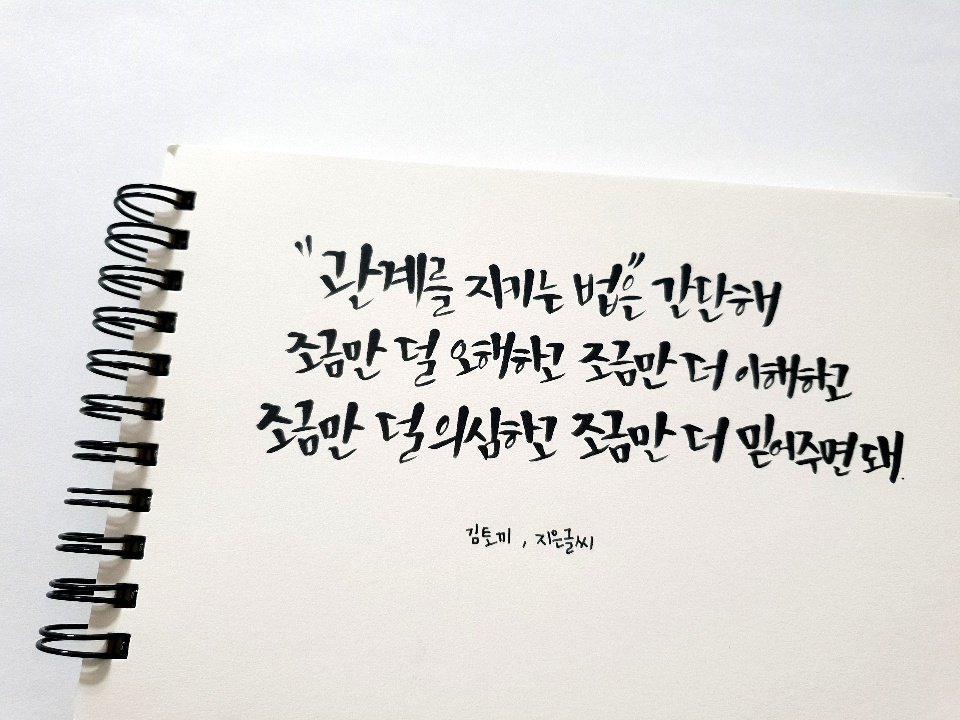 "관계를 지키는 법"은 간단해
조금만 덜 오해하고 조금만 더 이해하고
조금만 덜 의심하고 조금만 더 믿어주면 돼.
김토끼, 지은글씨